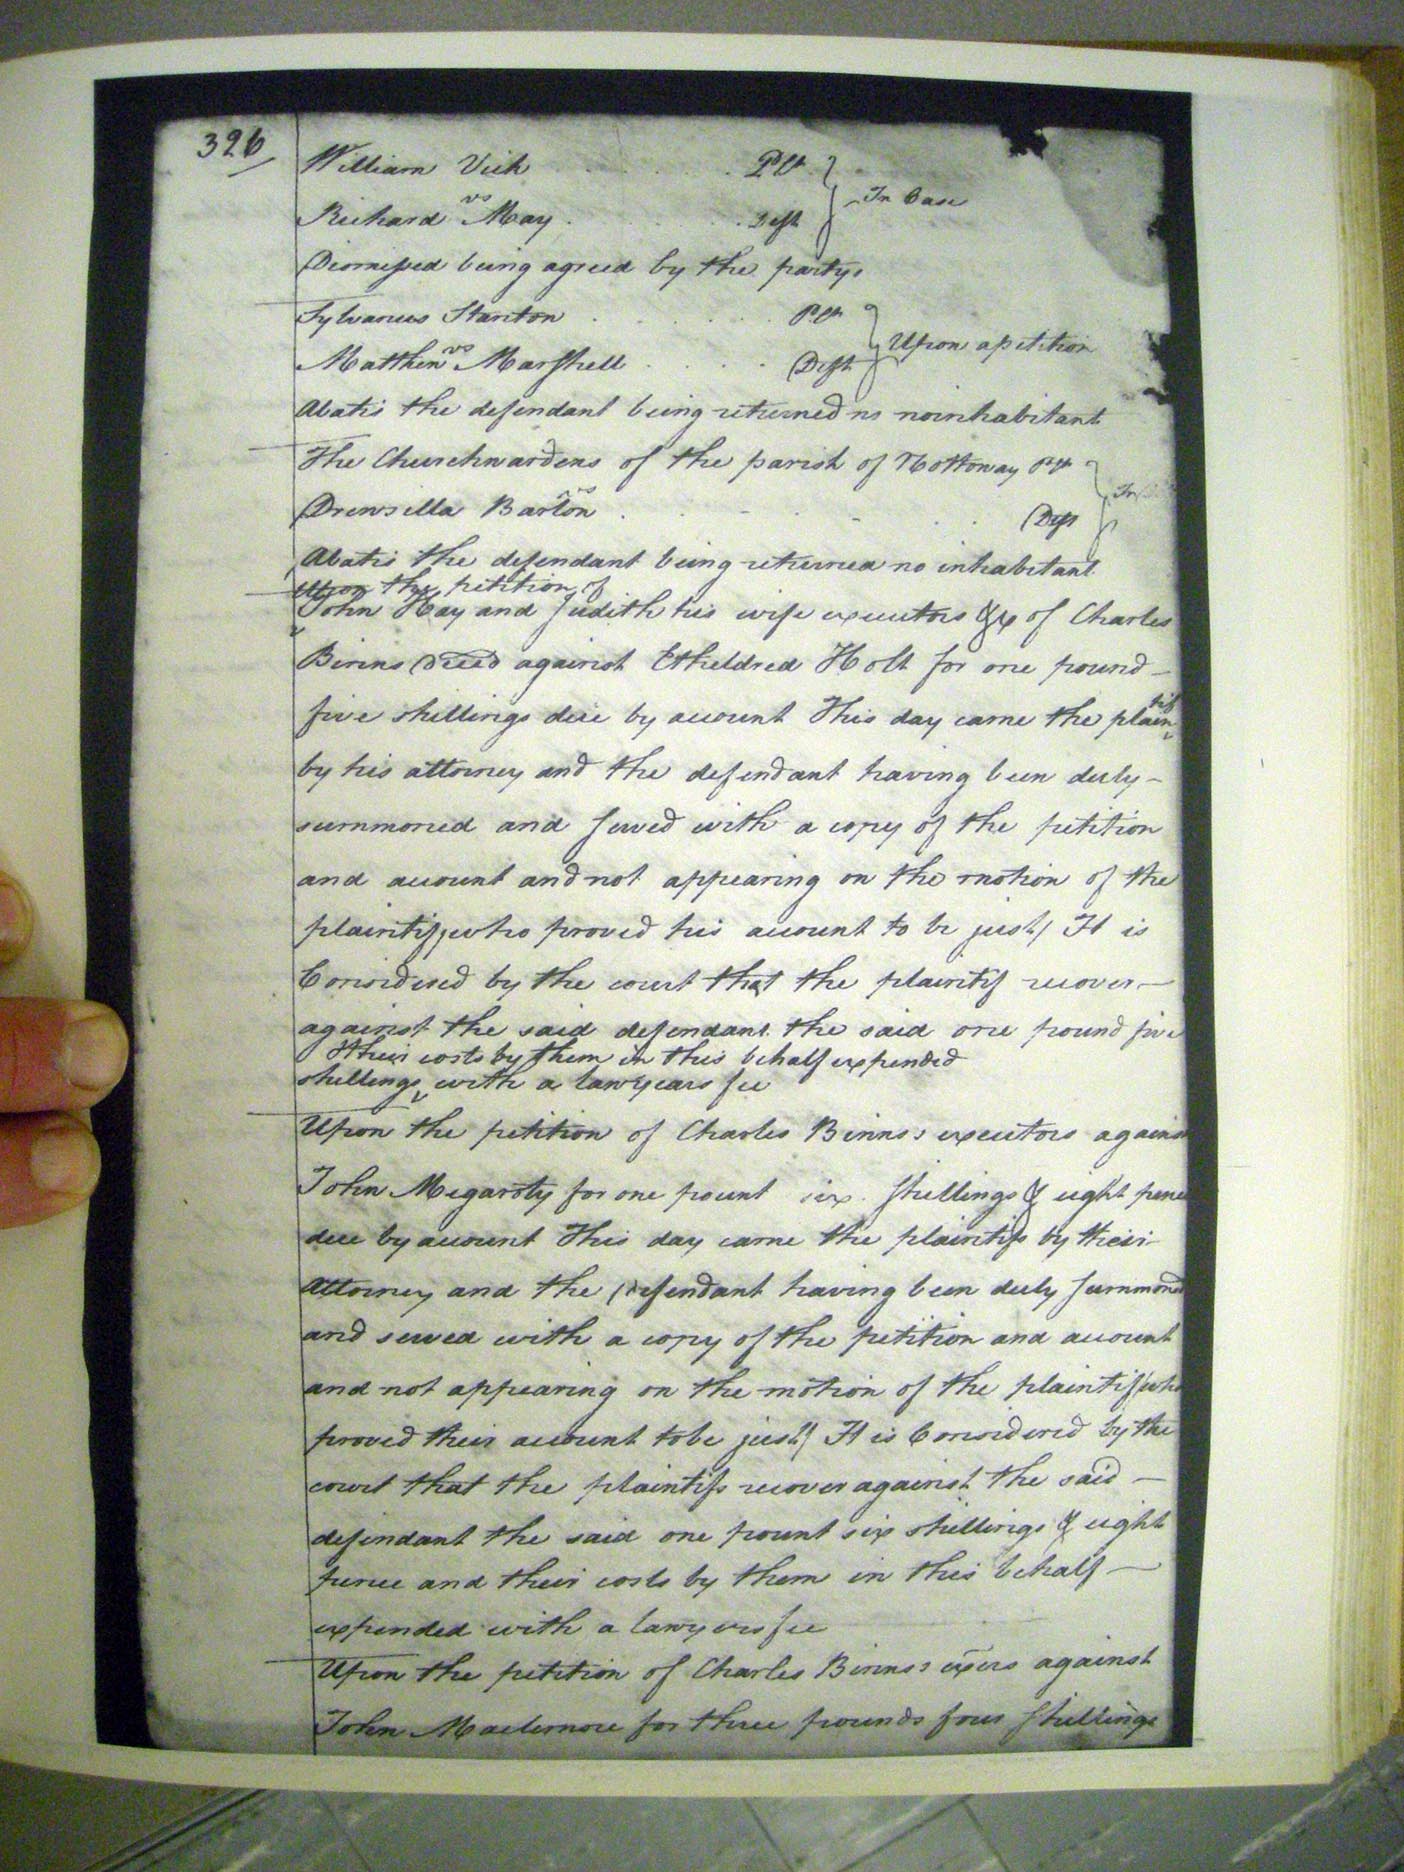 326
William Vick . . . . . . Plt
vs
In Case
Richard May . . . . . Deft
Dismissed being agreed by the partys
Sylvanus Stanton . . . . . Plt
vs
Upon a petition
Matthew Marshell . . . . Deft
Abatis the defendant being returned no noinhabitant
The Churchwardens of the parish of Nottoway Plt
vs
In
Drewsilla Barton . . . . . Deft
Abatis the defendant being returned no inhabitant
Upon the petition of
John Hay and Judith his wife executors &x of Charles
Binns Deced against Etheldred Holt for one pound -
five shillings due by account This day came the plaintif
by his attorney and the defendant having been duly -
summoned and served with a copy of the petition
and account and not appearing on the motion of the
plaintif, who proved his account to be just / It is
Considered by the court that the plaintif recover -
against the said defendant the said one pound five
& their costs by them in this behalf expended
shillings with a lawyears fee
Upon the petition of Charles Binns's executors against
John Megaroty for one pount six Shillings & eight pence
due by account This day came the plaintifs by their
Attorney and the defendant having been duly summoned
and served with a copy of the petition and account
and not appearing on the motion of the plaintifs who
proved their account to be just / It is Considered by the
court that the plaintifs recover against the said -
defendant the said one pount six shillings & eight
pence and their costs by them in this behalf -
expended with a lawyers fee
Upon the petition of Charles Binns's exors against
John Maclemore for three pounds four Shillings